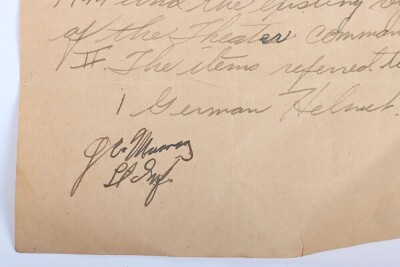 and the existing
of the Theater comman
II. The items referred t
1 German Helmet.
J E Murray
Lt Inf.